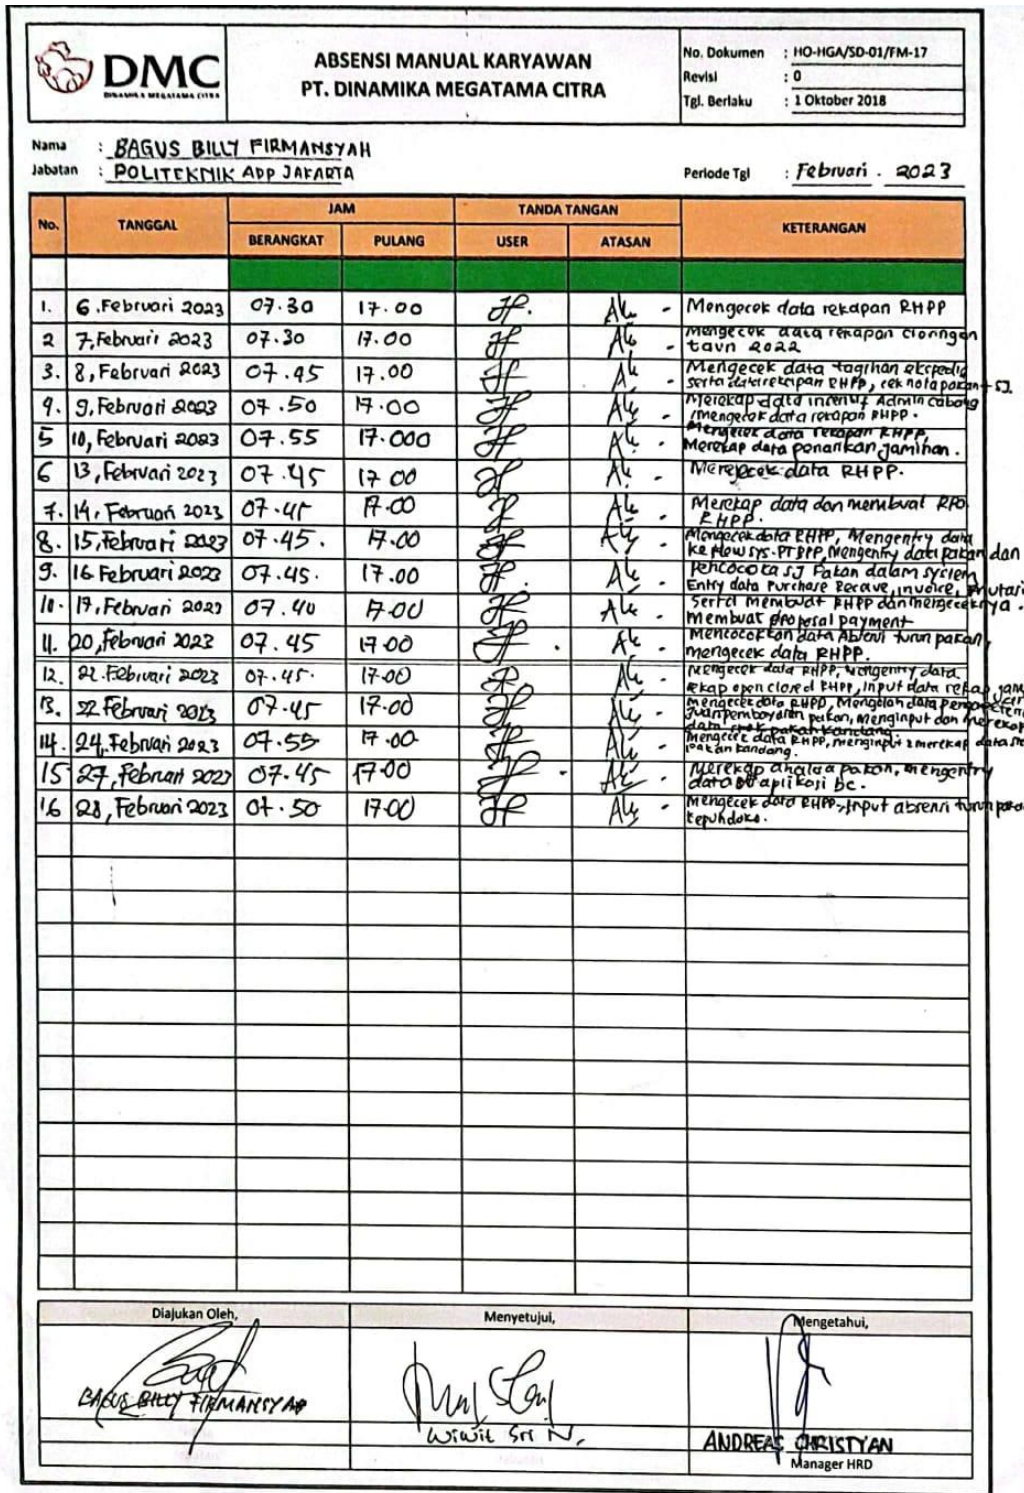 DMC
DINAMIKA MEGATAMA CITRA
ABSENSI MANUAL KARYAWAN
PT. DINAMIKA MEGATAMA CITRA
No. Dokumen : HO-HGA/SD-01/FM-17
Revisi : 0
Tgl. Berlaku : 1 Oktober 2018
Nama : BAGUS BILLY FIRMANSYAH
Jabatan : POLITEKNIK APP JAKARTA
Periode Tgl : Februari . 2023
No. TANGGAL JAM TANDA TANGAN KETERANGAN
BERANGKAT PULANG USER ATASAN
1. 6. Februari 2023 07.30 17.00 Mengecek data rekapan RHPP
2 7, Februari 2023 07.30 17.00 Mengecek data rekapan
taun 2022
3. 8, Februari 2023 07.45 17.00 Mengecek data tagihan ekspedisi
serta data rekapan RHPP, cek nota pakan + SJ.
4. 9, Februari 2023 07.50 17.00 Merekap data insentif Admin cabang
/mengecek data rekapan RHPP.
5 10, Februari 2023 07.55 17.000 Mengecek data rekapan RHPP,
Merekap data penarikan jaminan.
6 13, Februari 2023 07.45 17 00 data RHPP.
7. 14, Februari 2023 07.45 17.00 Merekap data dan membuat
RHPP.
8. 15, Februari 2023 07.45. 17.00 Mengecek data RHPP, Mengentry data
ke Mengentry data pakan dan
9. 16 Februari 2023 07.45. 17.00 SJ Pakan dalam system
Entry data Purchase Recave, invoice, mutasi
10. 17, Februari 2023 07.40 17.00 Serta membuat RHPP dan mengeceknya.
membuat proposal payment
11. 20, Februari 2023 07.45 17.00 Mencocokkan data Absensi turun pakan,
mengecek data RHPP.
12. 21 Februari 2023 07.45. 17.00 Mengecek data RHPP, Mengentry data
rekap open closed RHPP, input data rekap
13. 22 Februari 2023 07.45 17.00 mengecek data RHPP, data
pembayaran pakan, menginput dan merekap
data stok pakan kandang.
14. 24, Februari 2023 07.55 17.00 Mengecek data RHPP, menginput merekap data
pakan kandang.
15 27, Februari 2023 07.45 17.00 Merekap analisa pakan, mengentry
data aplikasi bc.
16 28, Februari 2023 07.50 17.00 Mengecek data RHPP, Input absensi turun
kepuhdoko.
Diajukan Oleh, Menyetujui, Mengetahui,
BAGUS BILLY FIRMANSYAH Wiwit Sri N. ANDREAS CHRISTYAN
Manager HRD